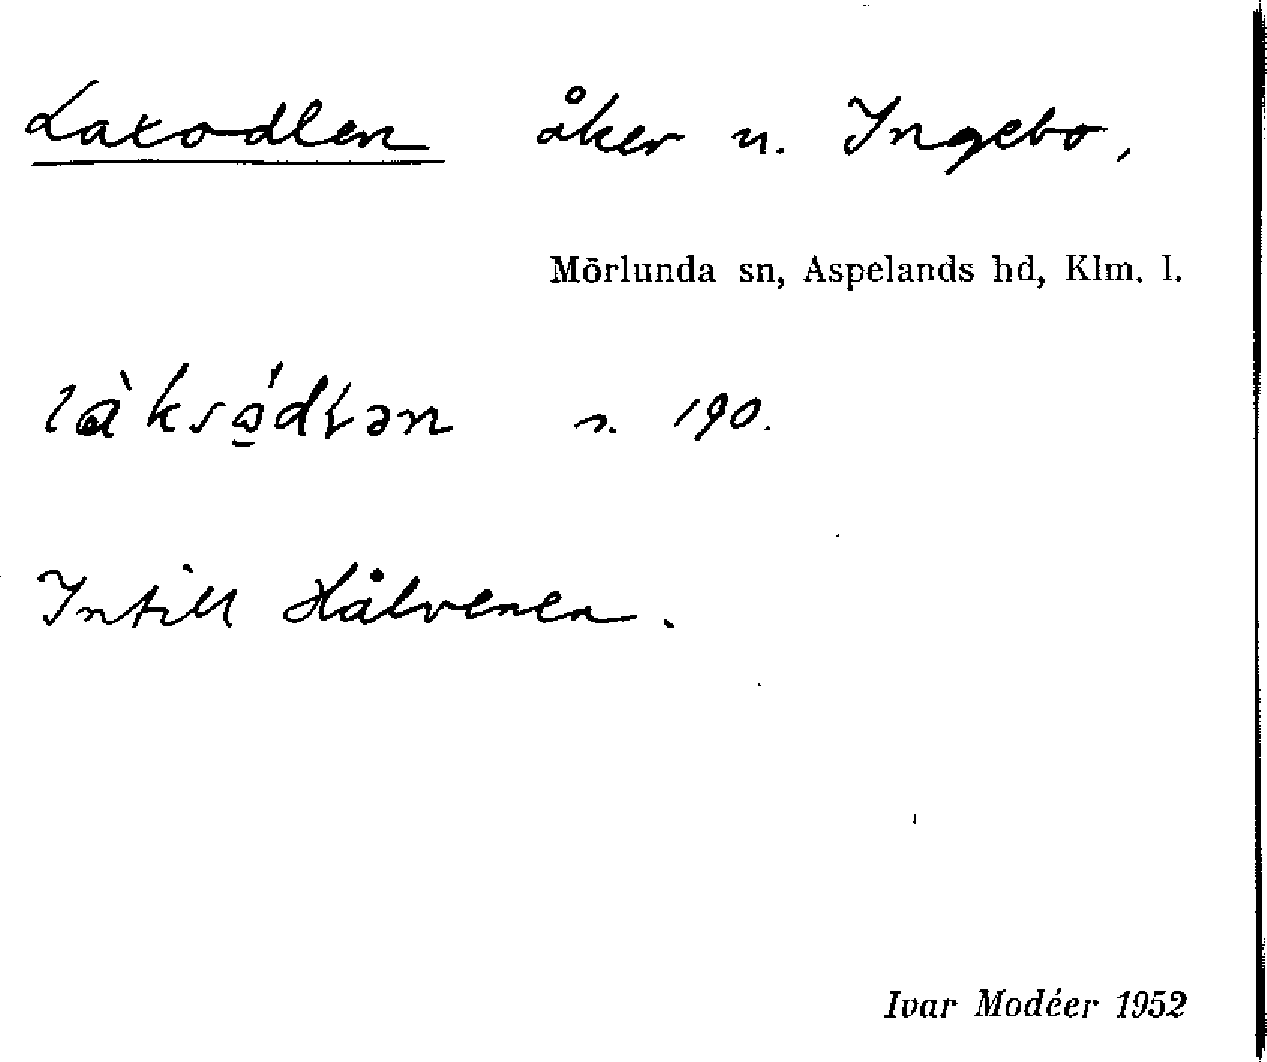 Laxodlen åker u. Ingebo,
Mörlunda sn, Aspelands hd, Klm. l.
s. 190.
Intill Hålvenen.
Ivar Modéer 1952